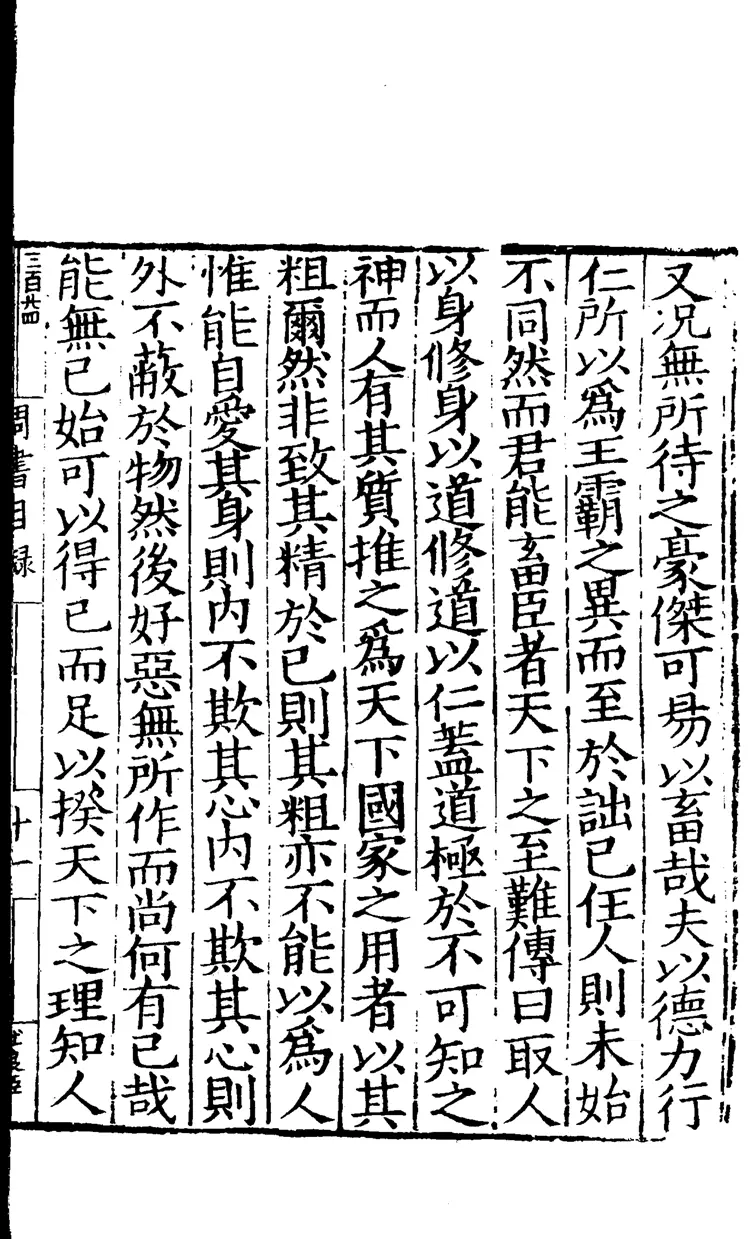 又况無所待之豪傑可昜以畜哉夫以德力行
仁所以爲王霸之異而至於詘己任人則未始
不同然而君能畜臣者天下之至難傳曰取人
以身修身以道修道以仁蓋道極於不可知之
神而人有其質推之爲天下國家之用者以其
粗爾然非致其精於己則其粗亦不能以爲人
惟能自愛其身則内不欺其心内不欺其心則
外不蔽於物然後好惡無所作而尚何有己哉
能無己始可以得己而足以揆天下之理知人
三百廿四
周書目録
十一